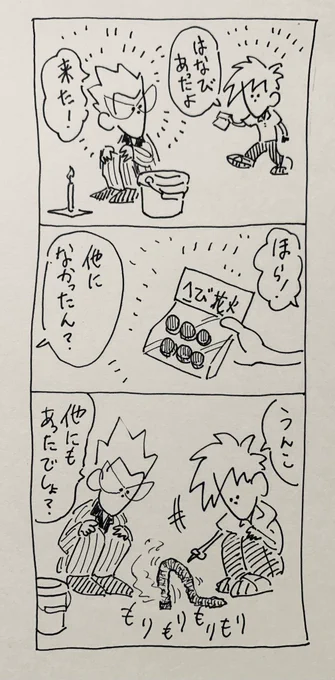 はなび
あったよ
来たー!
ほら!
へび花火
他に
なかったん?
うんこ
他にも
あったでしょ?
もりもりもりもり